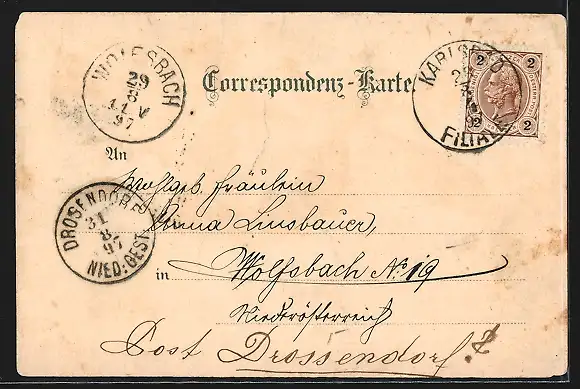 WOLFSBACH
29
8
11 V
97
Correspondenz-Karte.
KARLS
FILIALE
2 2
2 2
An
Wohlgeb. Fräulein
Anna Linsbauer,
in Wolfsbach No. 19
Niederösterreich
Post Drossendorf.
DROSENDORF
31
8
97
NIED:OEST.